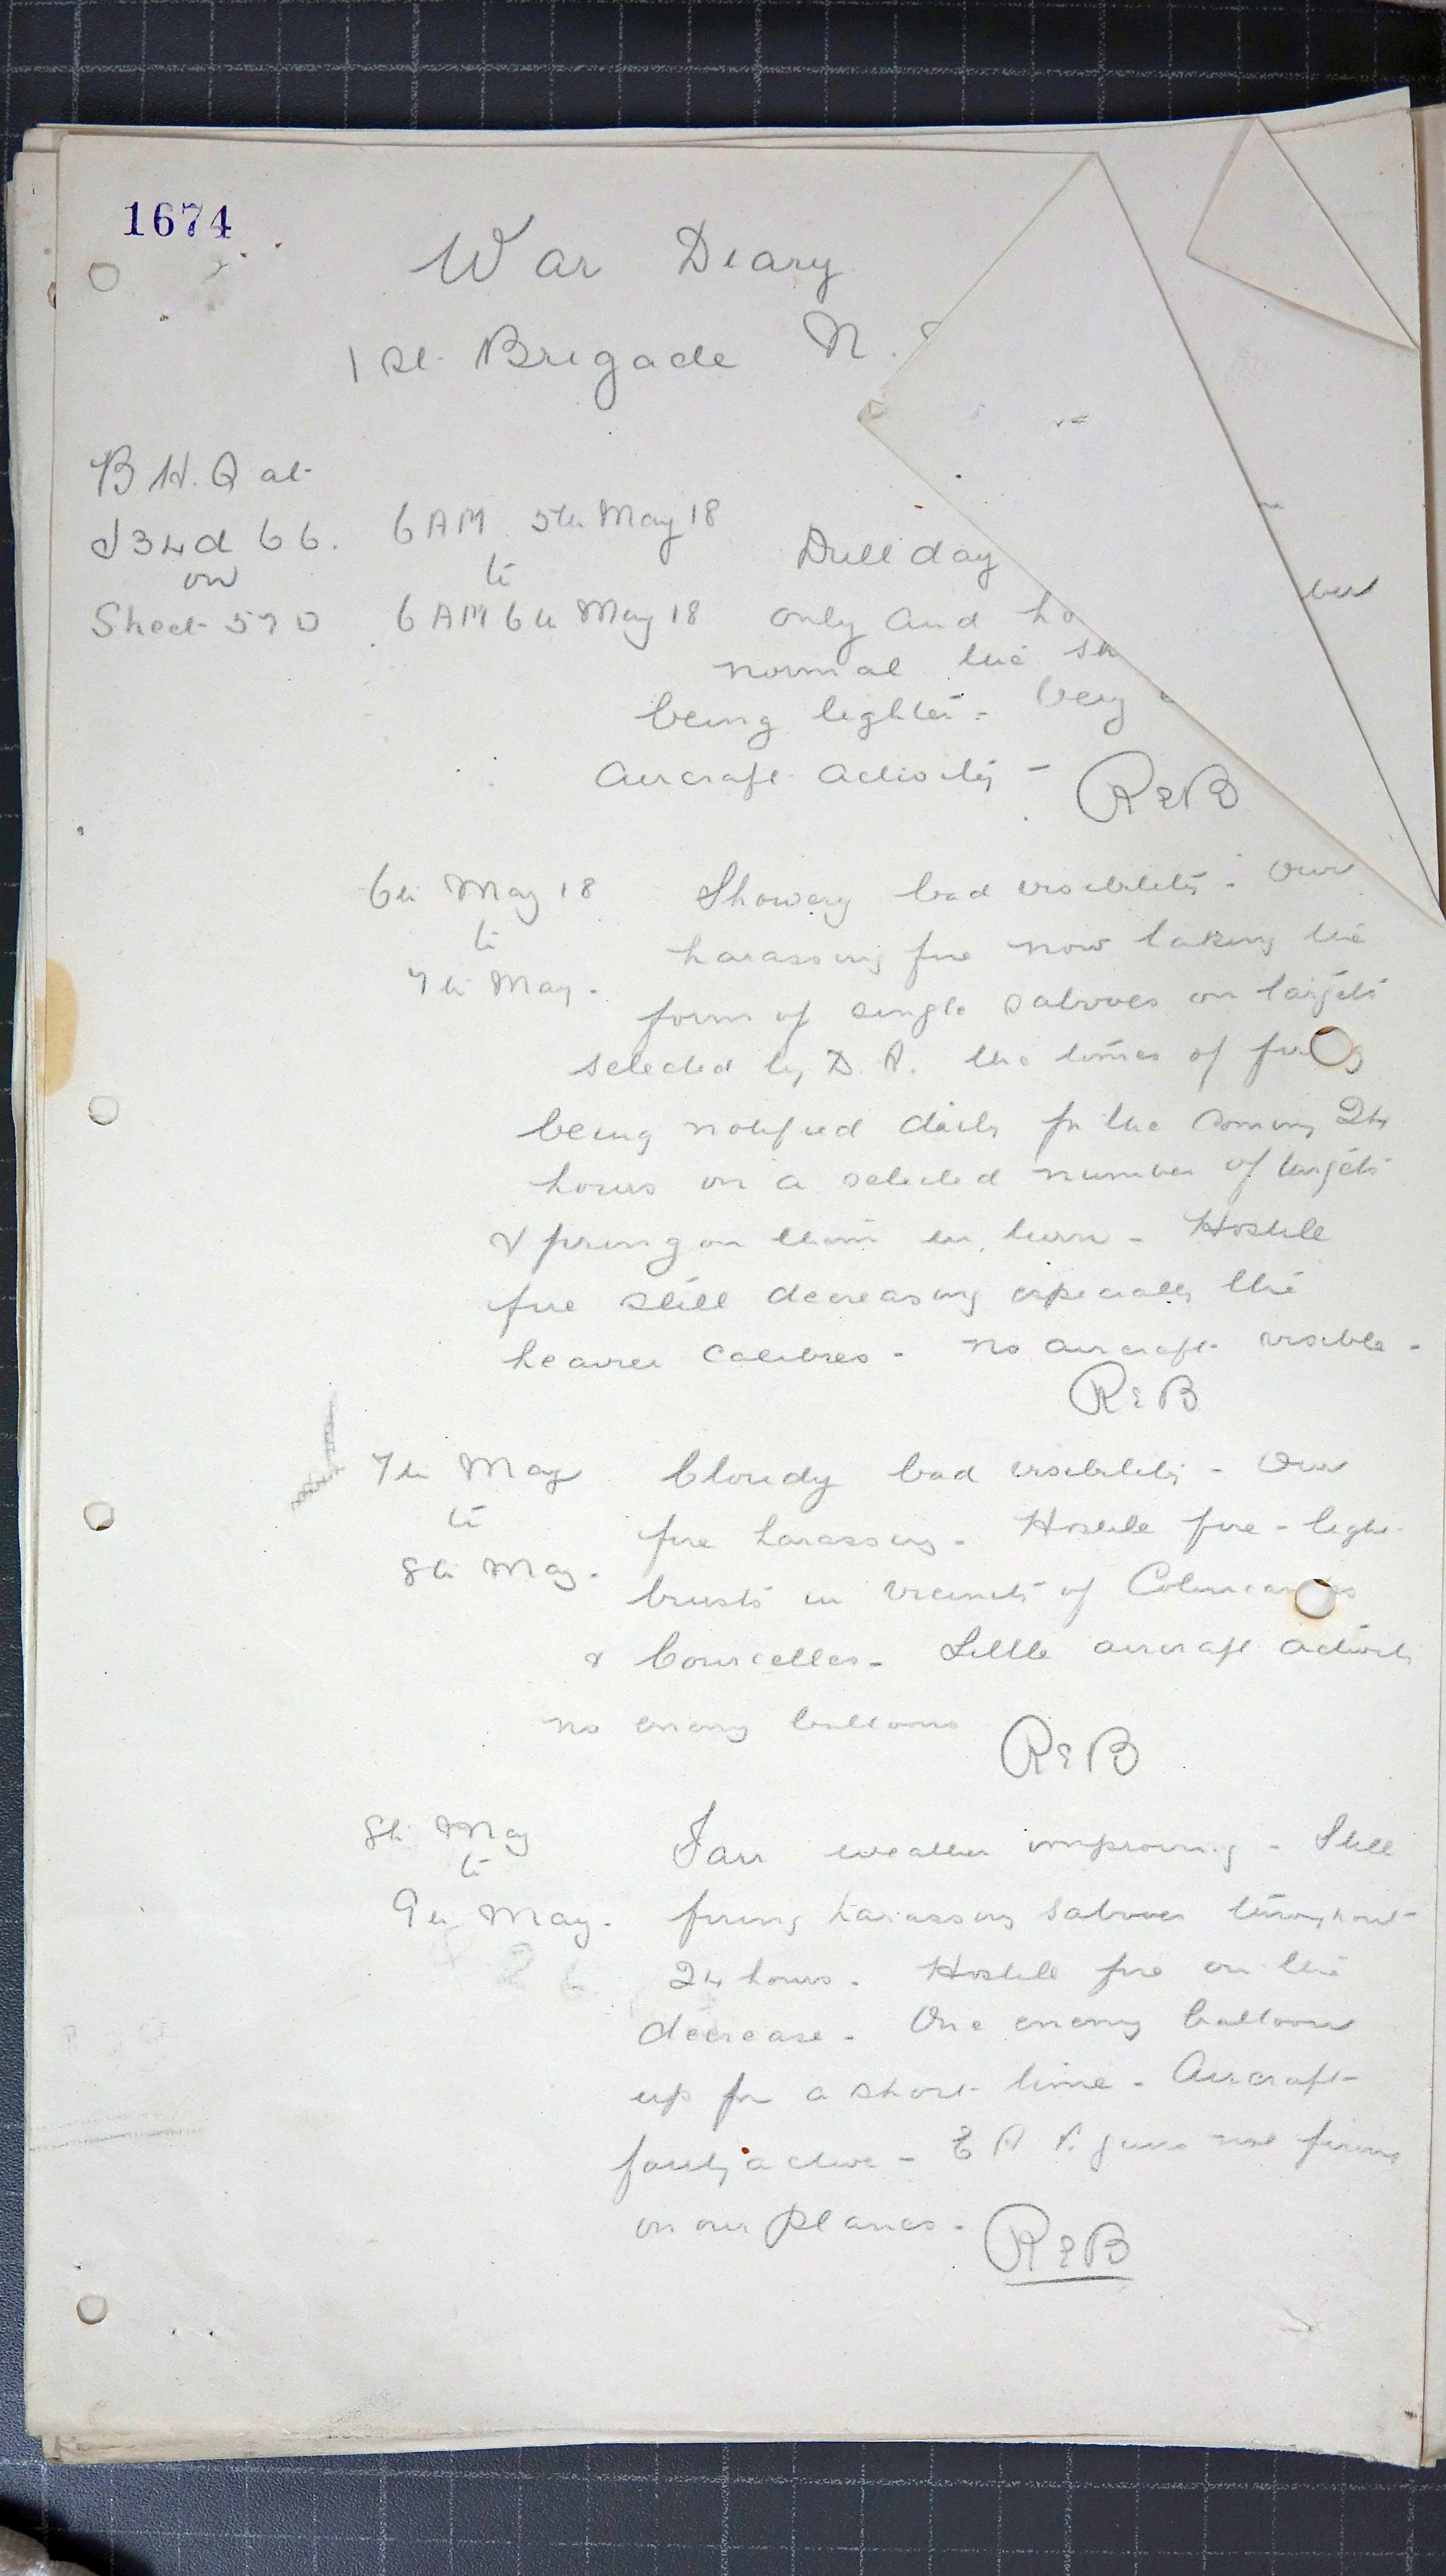 1674
War Diary
1st Brigade N.
B H. Q at
J34d 66.
on
Sheet 57D
6 AM 5th May 18
to
6 AM 6th May 18
Dull day
only and
normal the
being lighter - Very
Aircraft activity - REB
6th May 18
to
7th May.
Showery bad visibility - Our
harassing fire now taking the
form of single salvoes on targets
selected by D.A. the times of firing
being notified daily for the coming 24
hours on a selected number of targets
& firing on them in turn - Hostile
fire still decreasing especially the
heavier calibres - no aircraft visible -
REB
7th May
to
8th May.
Cloudy bad visibility - Our
fire harassing - Hostile fire - light
bursts in vicinity of Colincamps
& Courcelles - Little aircraft activity
no enemy balloons
REB
8th May
to
9th May.
Fair weather improving - Still
firing harassing salvoes throughout
24 hours - Hostile fire on the
decrease - One enemy balloon
up for a short time - Aircraft
fairly active - E A A guns not firing
on our planes -
REB